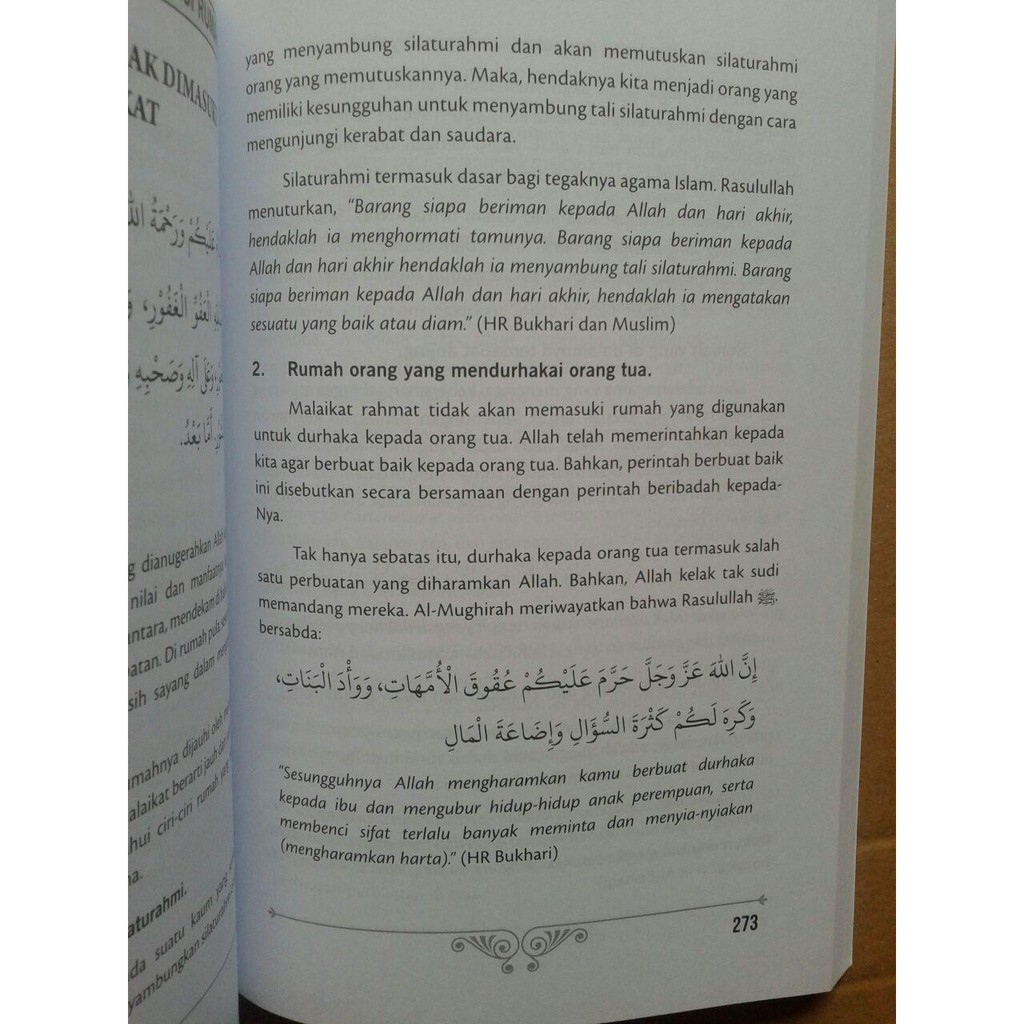 AK DIMASUK
KAT
عَلَيْكُمْ وَرَحْمَةُ
الْعَفُوِّ الْغَفُوْرِ،
وَعَلَى آلِهِ وَصَحْبِهِ
أَمَّا بَعْدُ.
dianugerahkan
nilai dan manfaatnya
antara, mendekam di
Di rumah pula,
sih sayang dalam
umahnya dijauhi oleh
alaikat berarti jauh dari
hui ciri-ciri rumah yang
na.
aturahmi.
da suatu kaum yang
yambungkan
yang menyambung silaturahmi dan akan memutuskan silaturahmi
orang yang memutuskannya. Maka, hendaknya kita menjadi orang yang
memiliki kesungguhan untuk menyambung tali silaturahmi dengan cara
mengunjungi kerabat dan saudara.
Silaturahmi termasuk dasar bagi tegaknya agama Islam. Rasulullah
menuturkan, “Barang siapa beriman kepada Allah dan hari akhir,
hendaklah ia menghormati tamunya. Barang siapa beriman kepada
Allah dan hari akhir hendaklah ia menyambung tali silaturahmi. Barang
siapa beriman kepada Allah dan hari akhir, hendaklah ia mengatakan
sesuatu yang baik atau diam.” (HR Bukhari dan Muslim)
2. Rumah orang yang mendurhakai orang tua.
Malaikat rahmat tidak akan memasuki rumah yang digunakan
untuk durhaka kepada orang tua. Allah telah memerintahkan kepada
kita agar berbuat baik kepada orang tua. Bahkan, perintah berbuat baik
ini disebutkan secara bersamaan dengan perintah beribadah kepada-
Nya.
Tak hanya sebatas itu, durhaka kepada orang tua termasuk salah
satu perbuatan yang diharamkan Allah. Bahkan, Allah kelak tak sudi
memandang mereka. Al-Mughirah meriwayatkan bahwa Rasulullah ﷺ.
bersabda:
إِنَّ اللهَ عَزَّ وَجَلَّ حَرَّمَ عَلَيْكُمْ عُقُوقَ الْأُمَّهَاتِ، وَوَأْدَ الْبَنَاتِ،
وَكَرِهَ لَكُمْ كَثْرَةَ السُّؤَالِ وَإِضَاعَةَ الْمَالِ
“Sesungguhnya Allah mengharamkan kamu berbuat durhaka
kepada ibu dan mengubur hidup-hidup anak perempuan, serta
membenci sifat terlalu banyak meminta dan menyia-nyiakan
(mengharamkan harta).” (HR Bukhari)
273